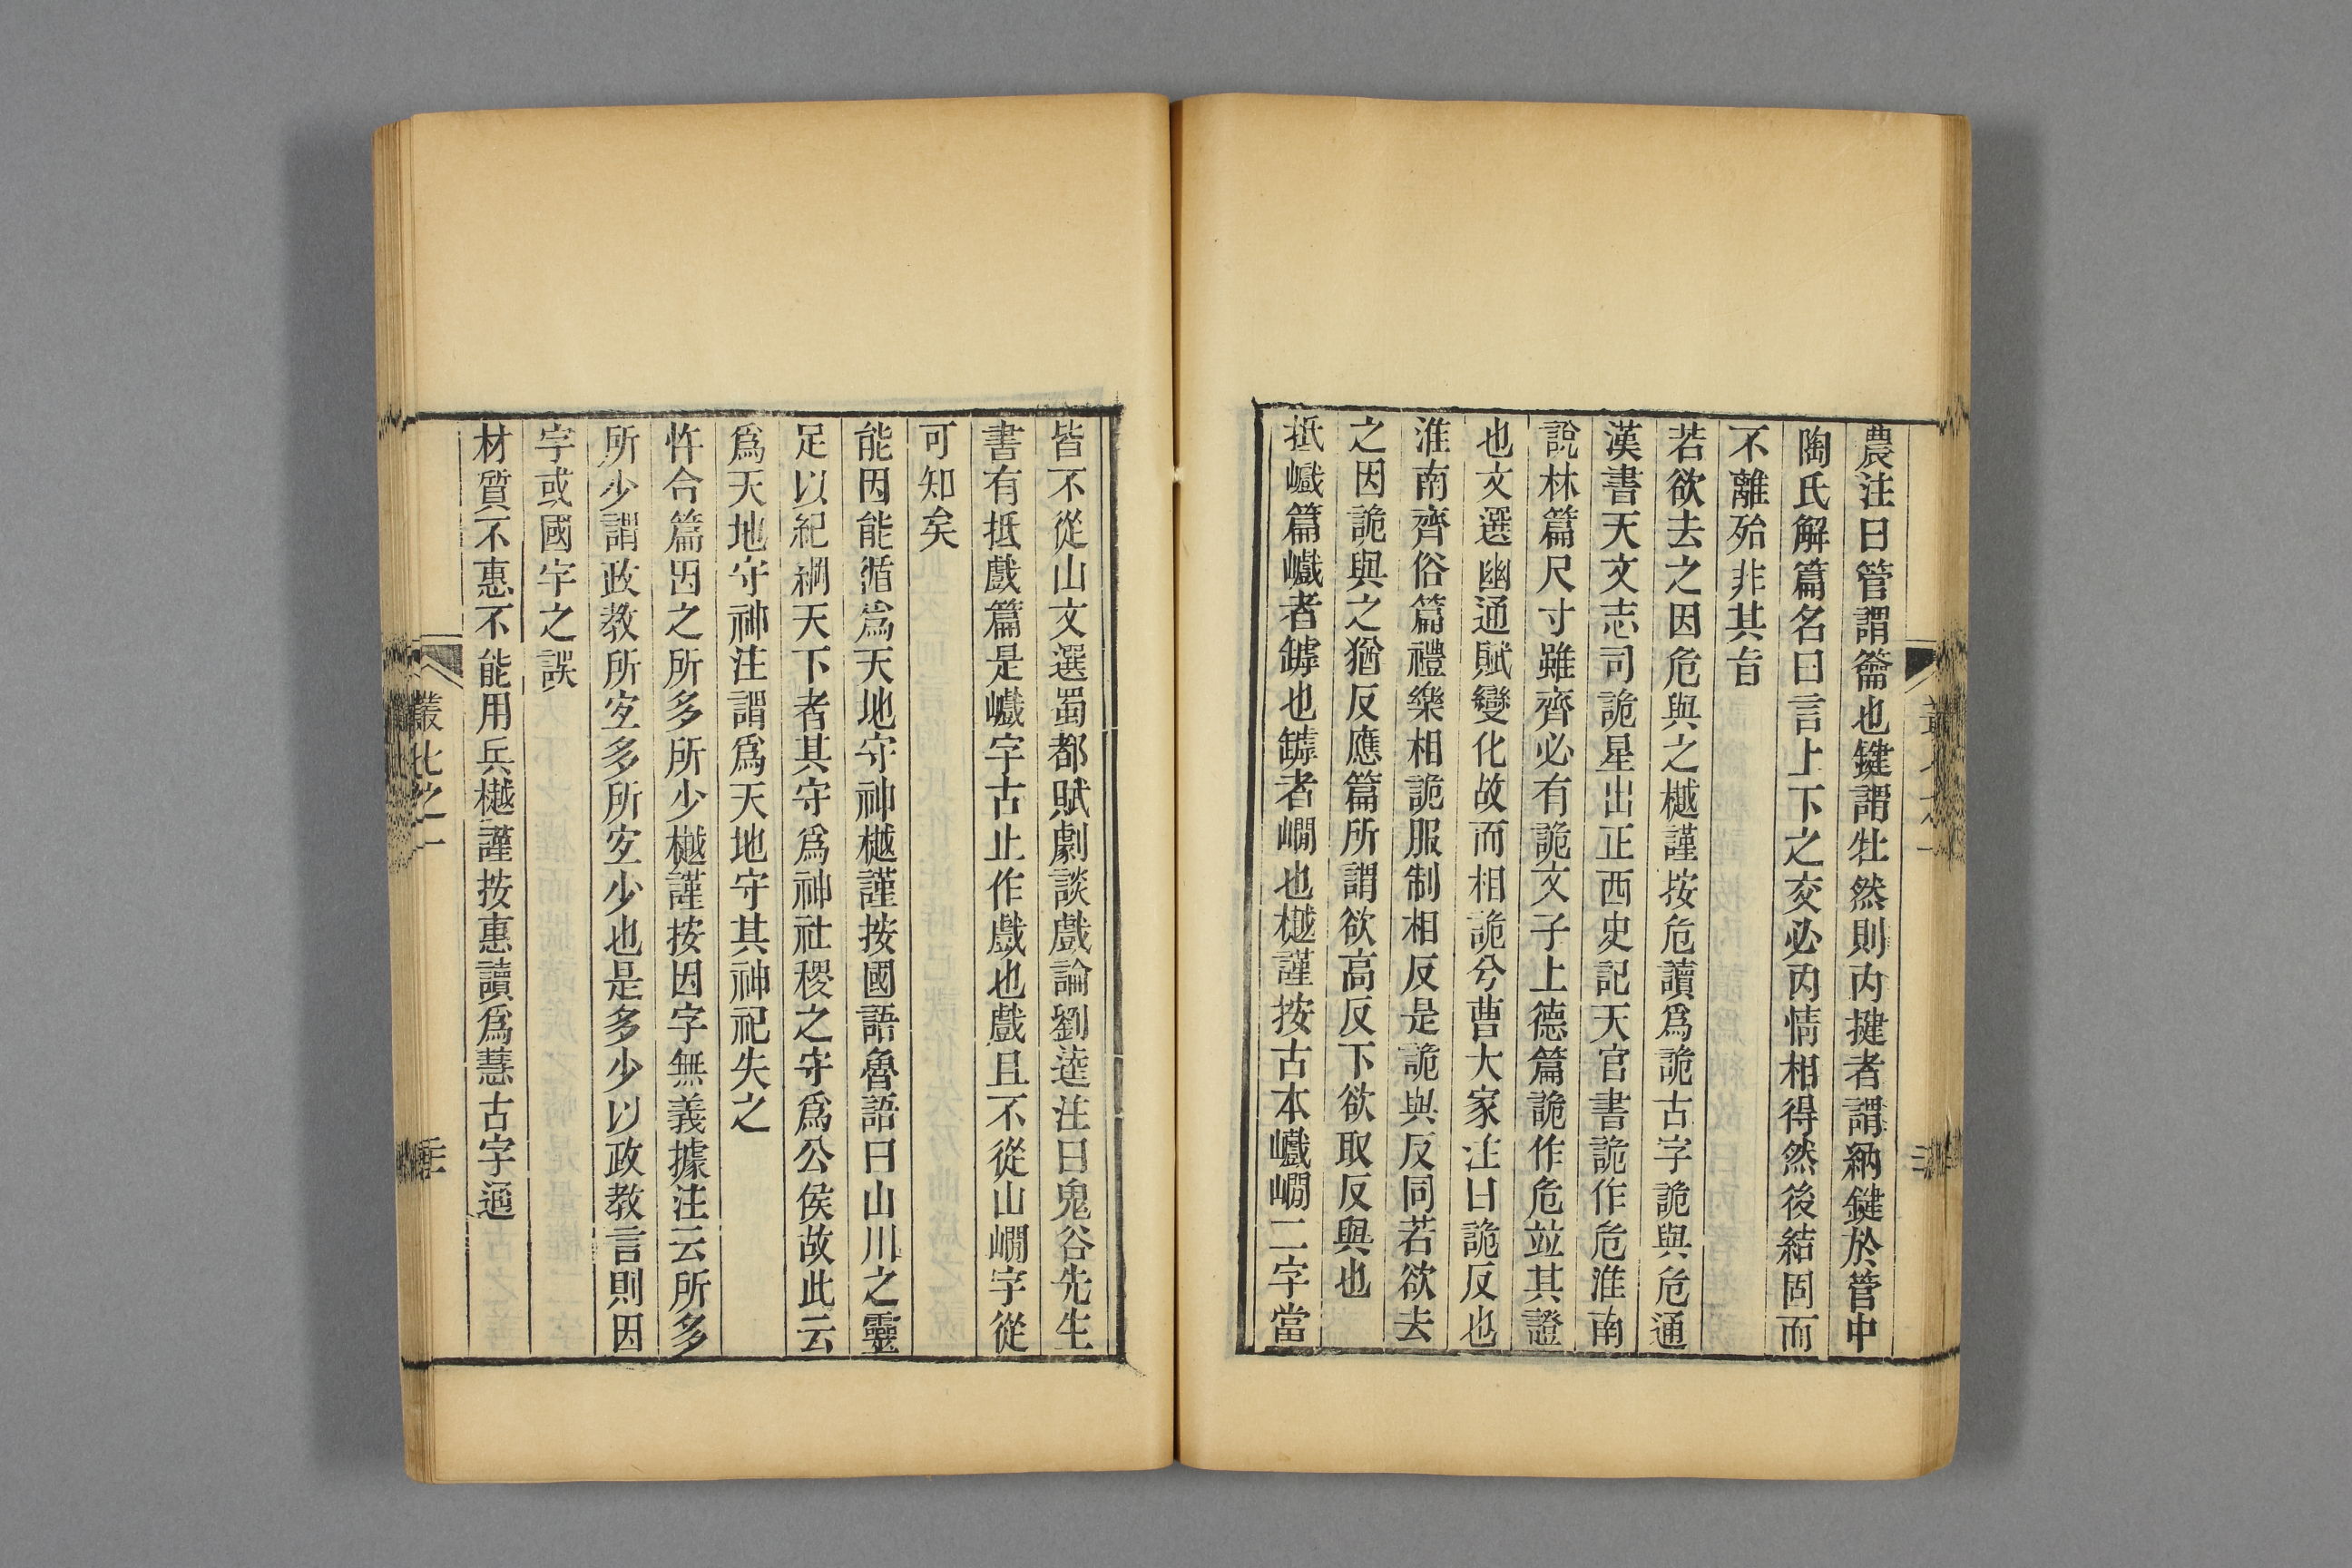 農注曰管謂籥也鍵謂牡然則内揵者謂納鍵於管中
陶氏解篇名曰言上下之交必内情相得然後結固而
不離殆非其旨
若欲去之因危與之樾謹按危讀爲詭古字詭與危通
漢書天文志司詭星出正西史記天官書詭作危淮南
說林篇尺寸雖齊必有詭文子上德篇詭作危竝其證
也文選幽通賦變化故而相詭兮曹大家注曰詭反也
淮南齊俗篇禮樂相詭服制相反是詭與反同若欲去
之因詭與之猶反應篇所謂欲高反下欲取反與也
抵巇篇巇者罅也罅者㵎也樾謹按古本巇㵎二字當
皆不從山文選蜀都賦劇談戲論劉逵注曰鬼谷先生
書有抵戲篇是巇字古止作戲也戲且不從山㵎字從
可知矣
能因能循爲天地守神樾謹按國語魯語曰山川之靈
足以紀綱天下者其守爲神社稷之守爲公侯故此云
爲天地守神注謂爲天地守其神祀失之
忤合篇因之所多所少樾謹按因字無義據注云所多
所少謂政教所宜多所宜少也是多少以政教言則因
字或國字之誤
材質不惠不能用兵樾謹按惠讀爲慧古字通
叢七之一